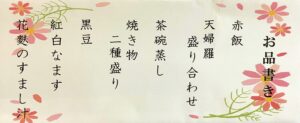 お品書き
赤飯
天婦羅
盛り合わせ
茶碗蒸し
焼き物
二種盛り
黒豆
紅白なます
花麩のすまし汁